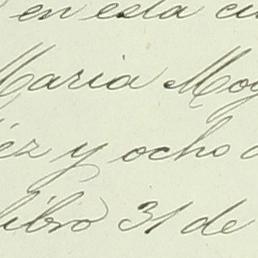 en esta ci
Maria Mog
éz y ocho a
libro 31 de